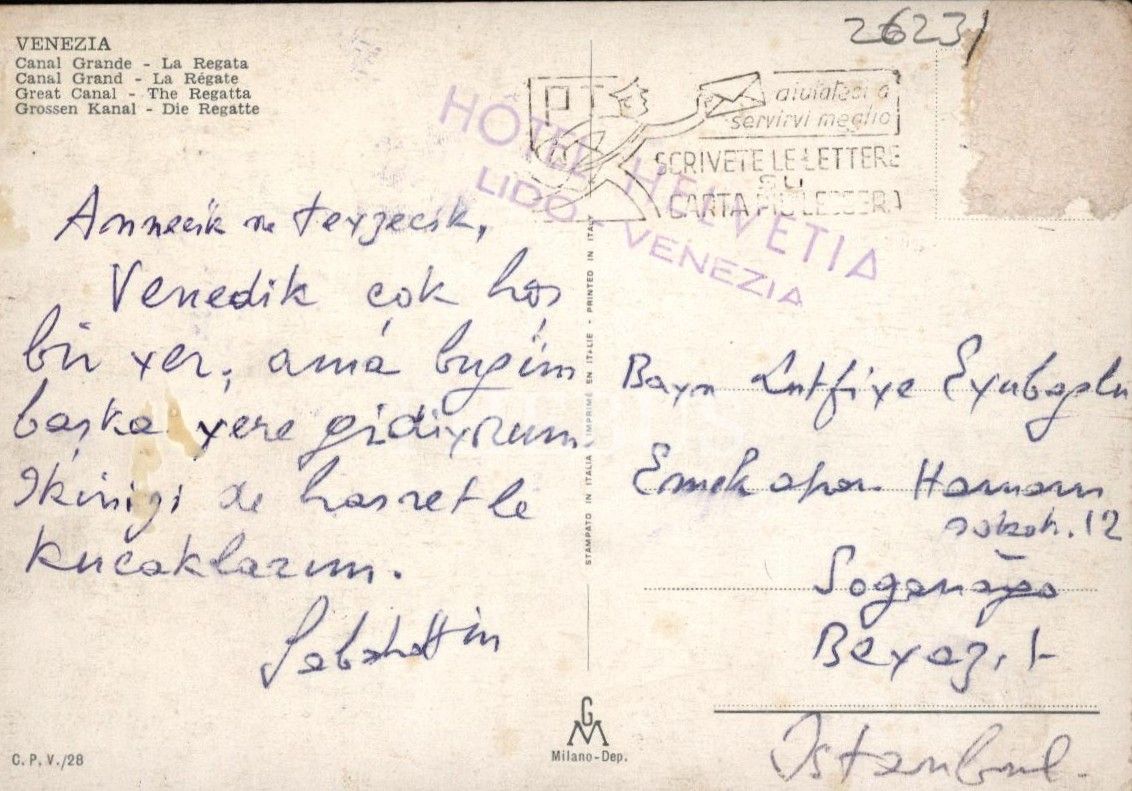 26231
VENEZIA
Canal Grande - La Regata
Canal Grand - La Régate
Great Canal - The Regatta
Grossen Kanal - Die Regatte
PT
aiutateci a
servirvi meglio
SCRIVETE LE LETTERE
SU
CARTA PIÙ LEGGERA
HÔTEL HELVETIA
LIDO - VENEZIA
Annecik ve teyzecik,
Venedik çok hoş
bir yer, ama bugün
başka yere gidiyorum.
İkinizi de hasretle
kucaklarım.
Sabahattin
STAMPATO IN ITALIA - IMPRIMÉ EN ITALIE - PRINTED IN ITALY
Bayn Lutfiye Eyuboğlu
Emek apar. Hamam
sokak. 12
Soğanağa
Beyazıt
Istanbul.
C. P. V./28
GM
Milano-Dep.